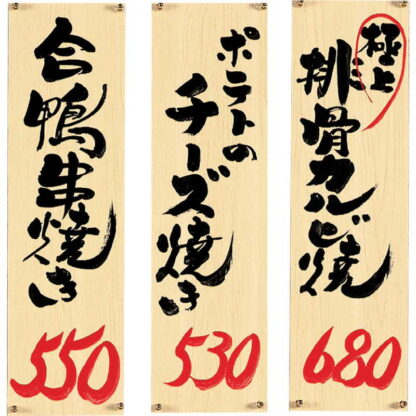 極上
排骨カルビ焼
680
ポテトの
チーズ焼き
530
合鴨串焼き
550